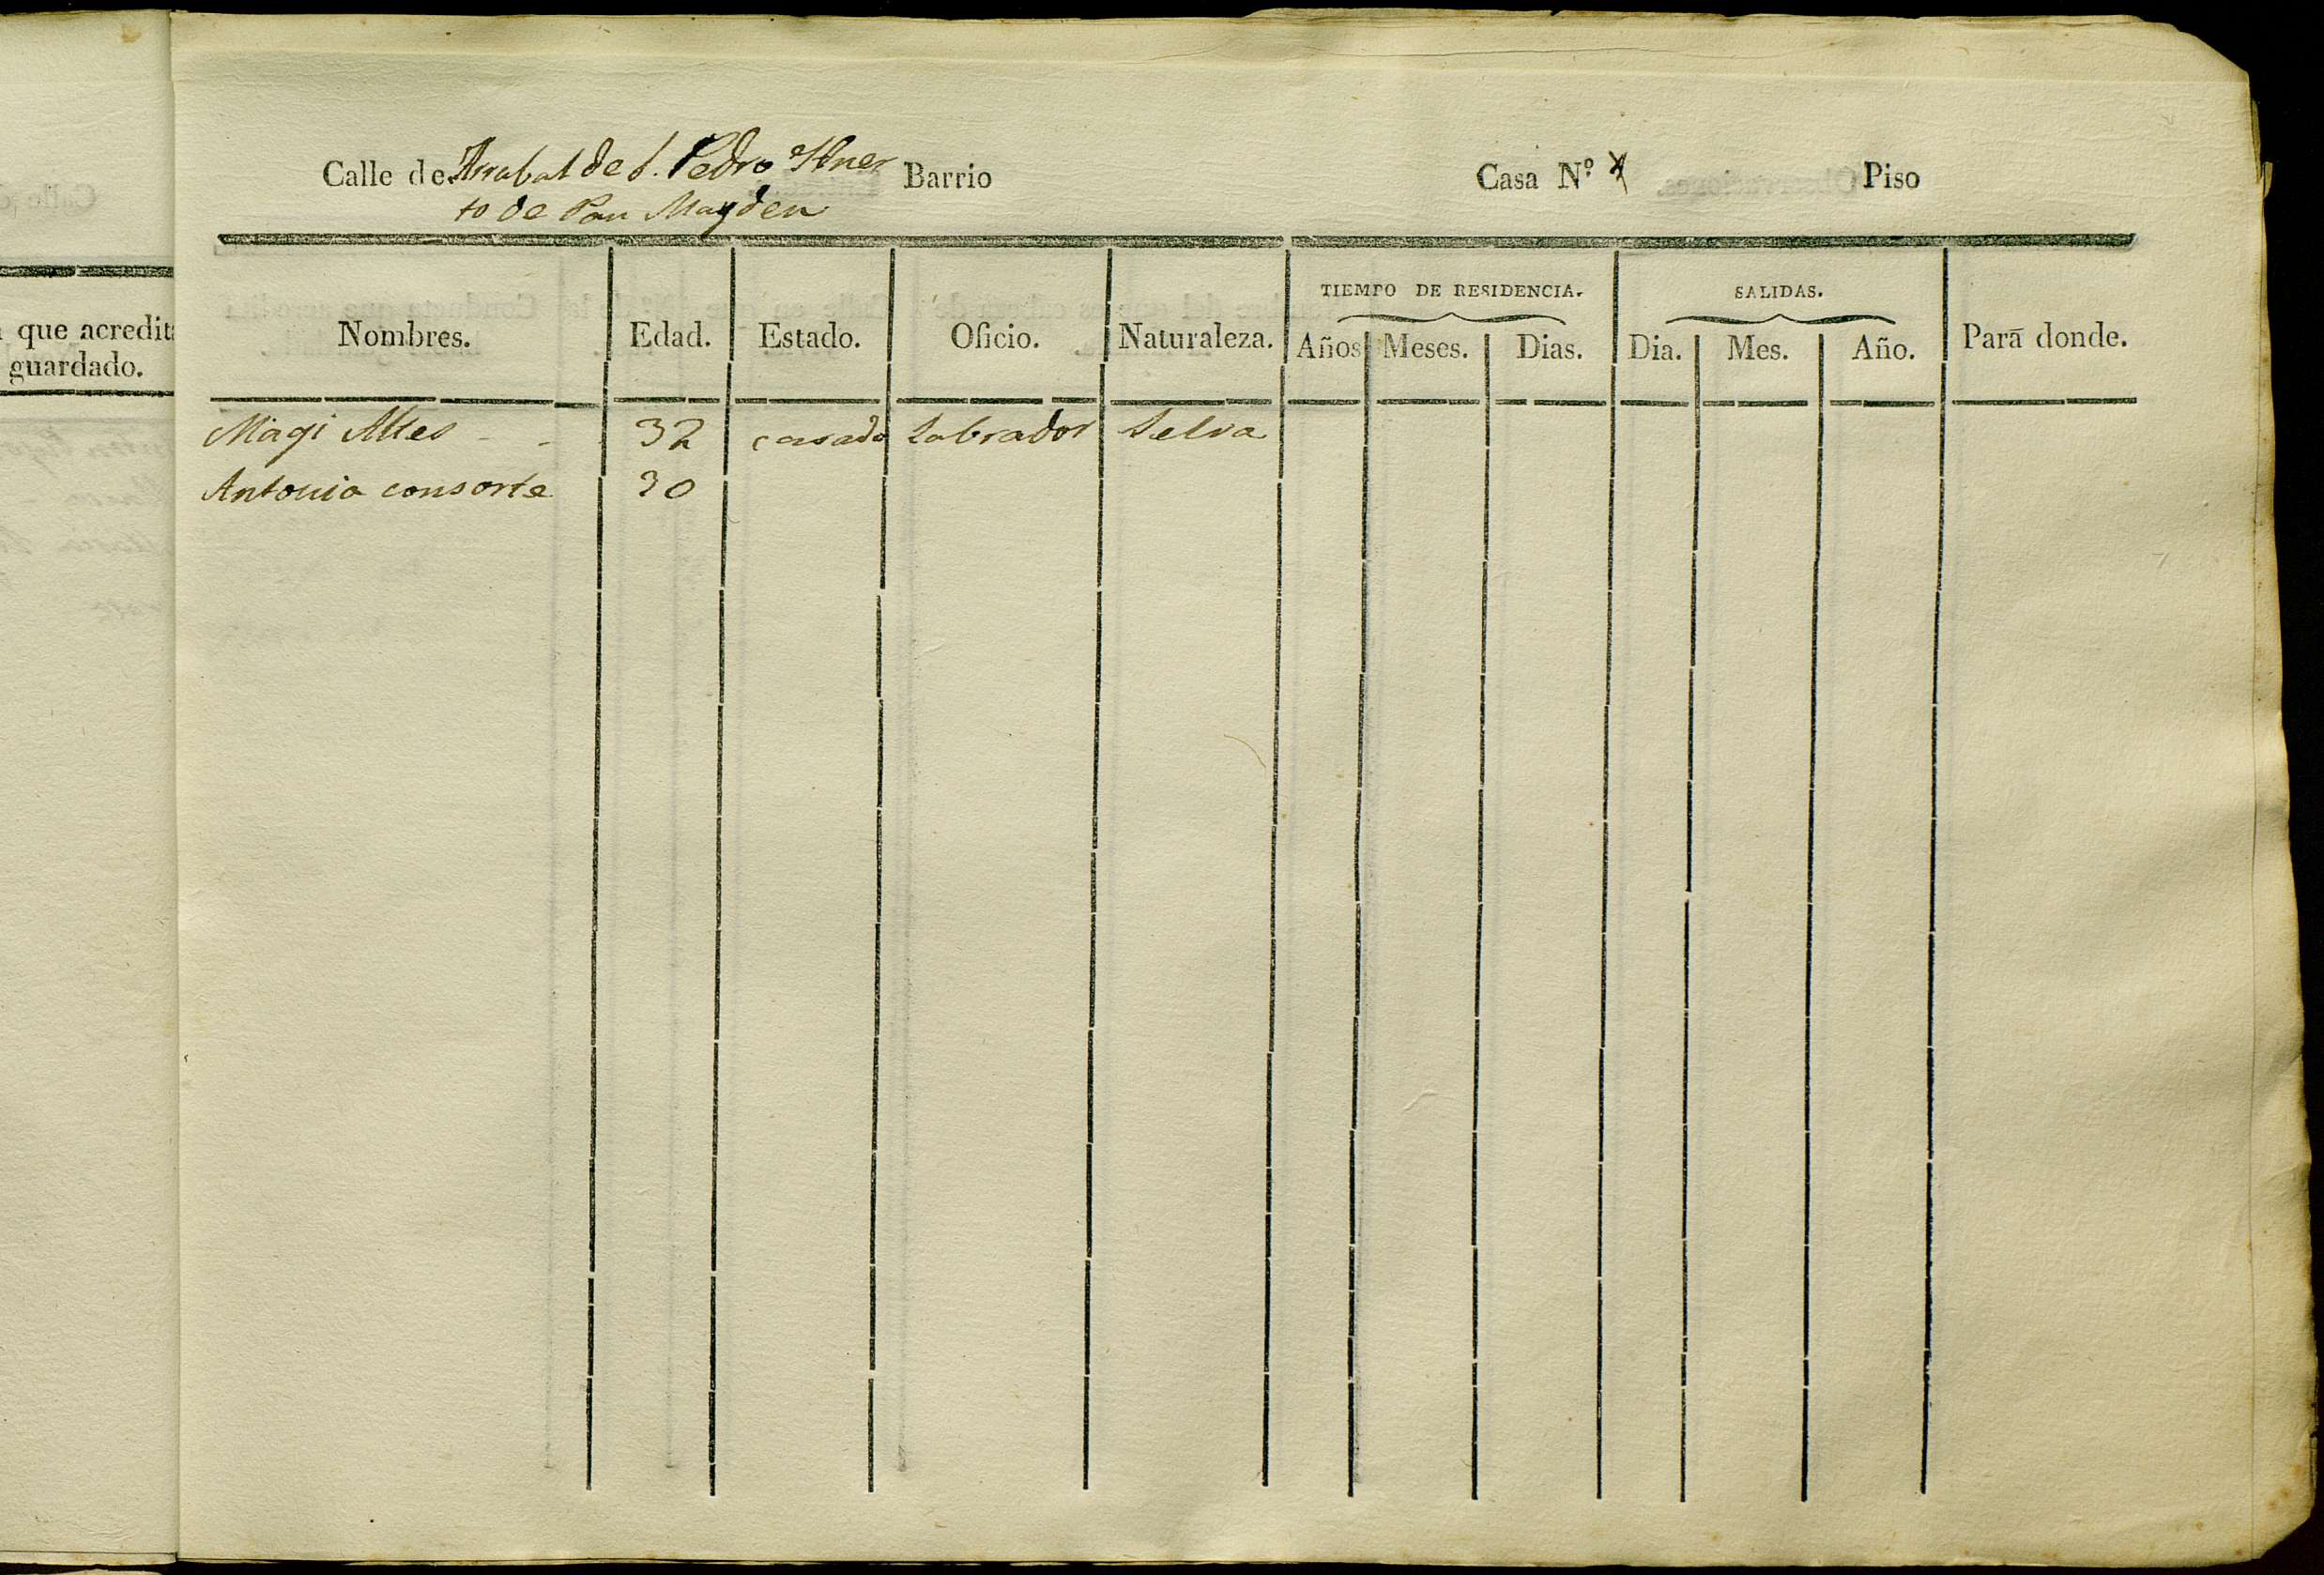 que acredit
guardado.
Calle de Arrabal de S. Pedro Huer Barrio Casa N.º Piso
to de Pau Magden
TIEMPO DE RESIDENCIA. SALIDAS.
Nombres. Edad. Estado. Oficio. Naturaleza. Años Meses. Dias. Dia. Mes. Año. Para donde.
Magi Alles 32 casado Labrador Selva
Antonia consorte 30